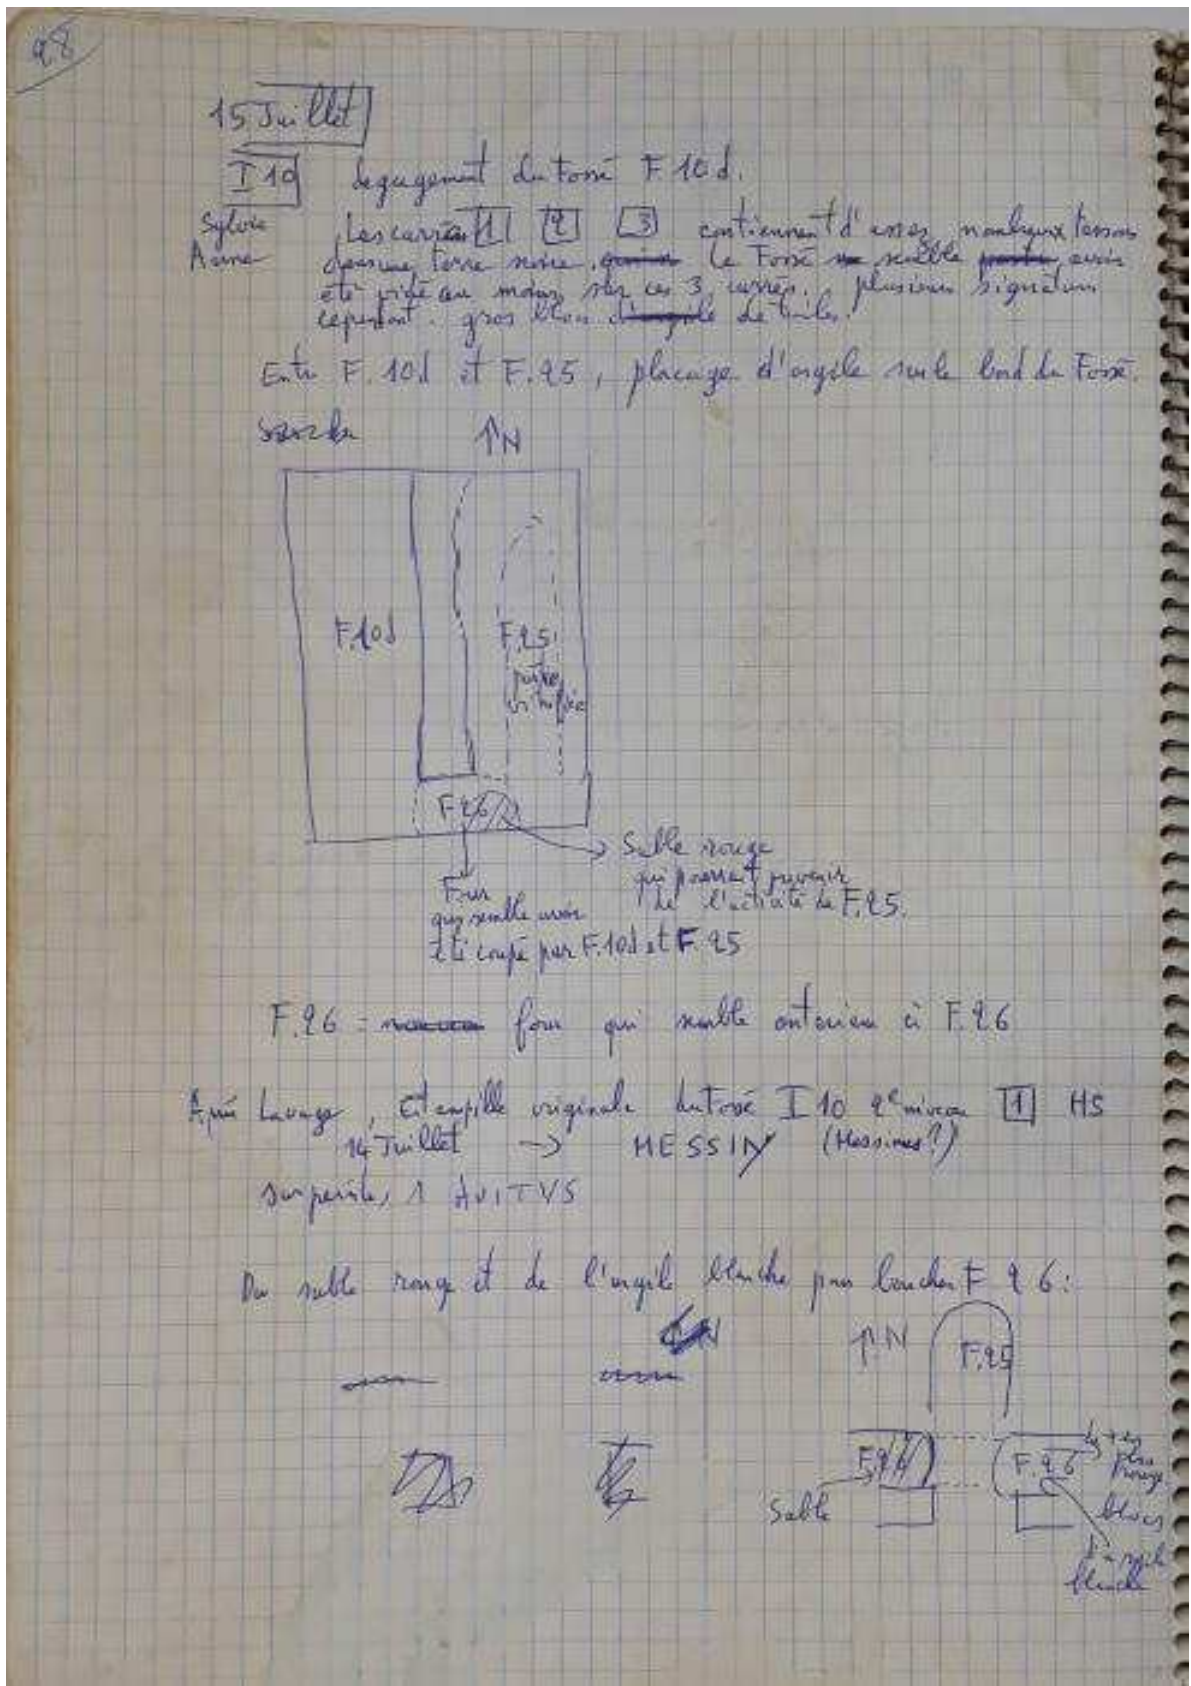 98
15 Juillet
I 10 degagement du Fossé F.10d.
Sylvie Les carrés 1 2 3 contiennent d'assez nombreux tessons
Anne terre noire. Le Fossé semble avoir
été vidé au moins sur ces 3 carrés. plusieurs signatures
cependant. gros blocs de tuiles.
Entre F.10d et F.25, placage d'argile sur le bord du Fossé.
↑N
F.10d
F.25
partie
vitrifiée
F26
Sable rouge
qui pourrait provenir
de l'activité de F.25.
Four
qui semble avoir
été coupé par F.10d et F 25
F.26 = four qui semble anterieur à F.26
Après Lavage, Estampille originale du fossé I 10 2e niveau 1 HS
14 Juillet → MESSIN (Messinus?)
1 AVITVS
Du sable rouge et de l'argile blanche pour boucher F 26:
↑N
F.25
F.26
F.26
Sable
blocs
d'argile
blanche